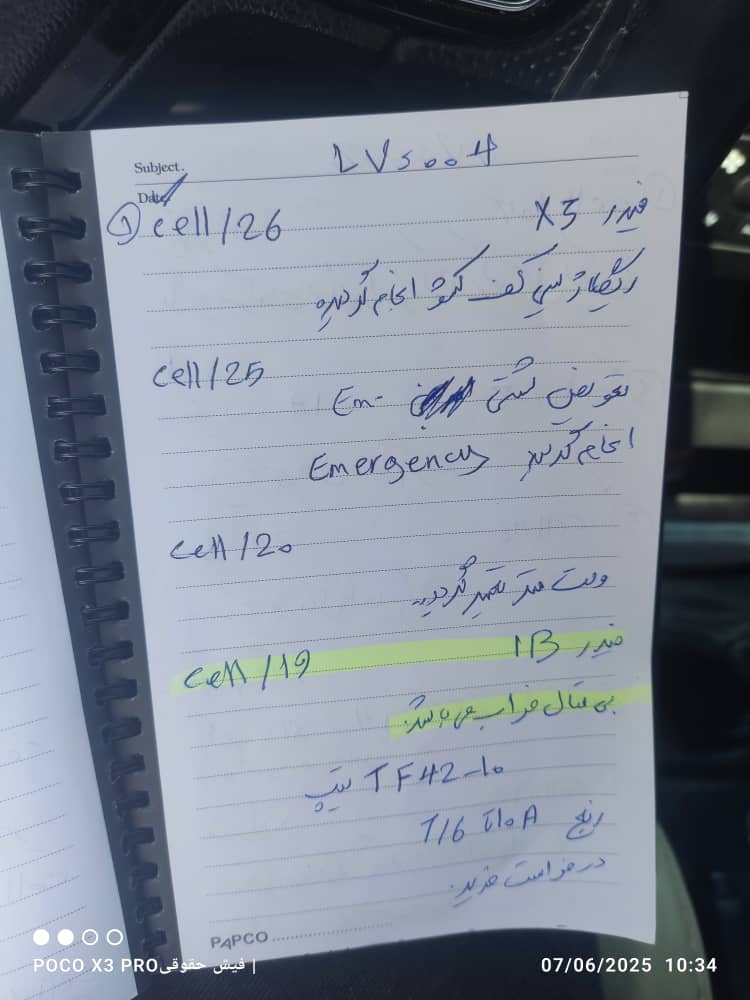 Subject. LVS004
Date
① cell/26 فیدر X3
انجام گردیده
cell/25
تعویض شستی Em-
Emergency انجام گردید
cell/20
ولت متر تعمیر گردید.
cell/19 فیدر 1B
بی متال خراب می باشد.
TF42-10 تیپ
رنج 7/6 تا 10A
درخواست خرید.
PAPCO
POCO X3 PRO فیش حقوقی |
07/06/2025 10:34